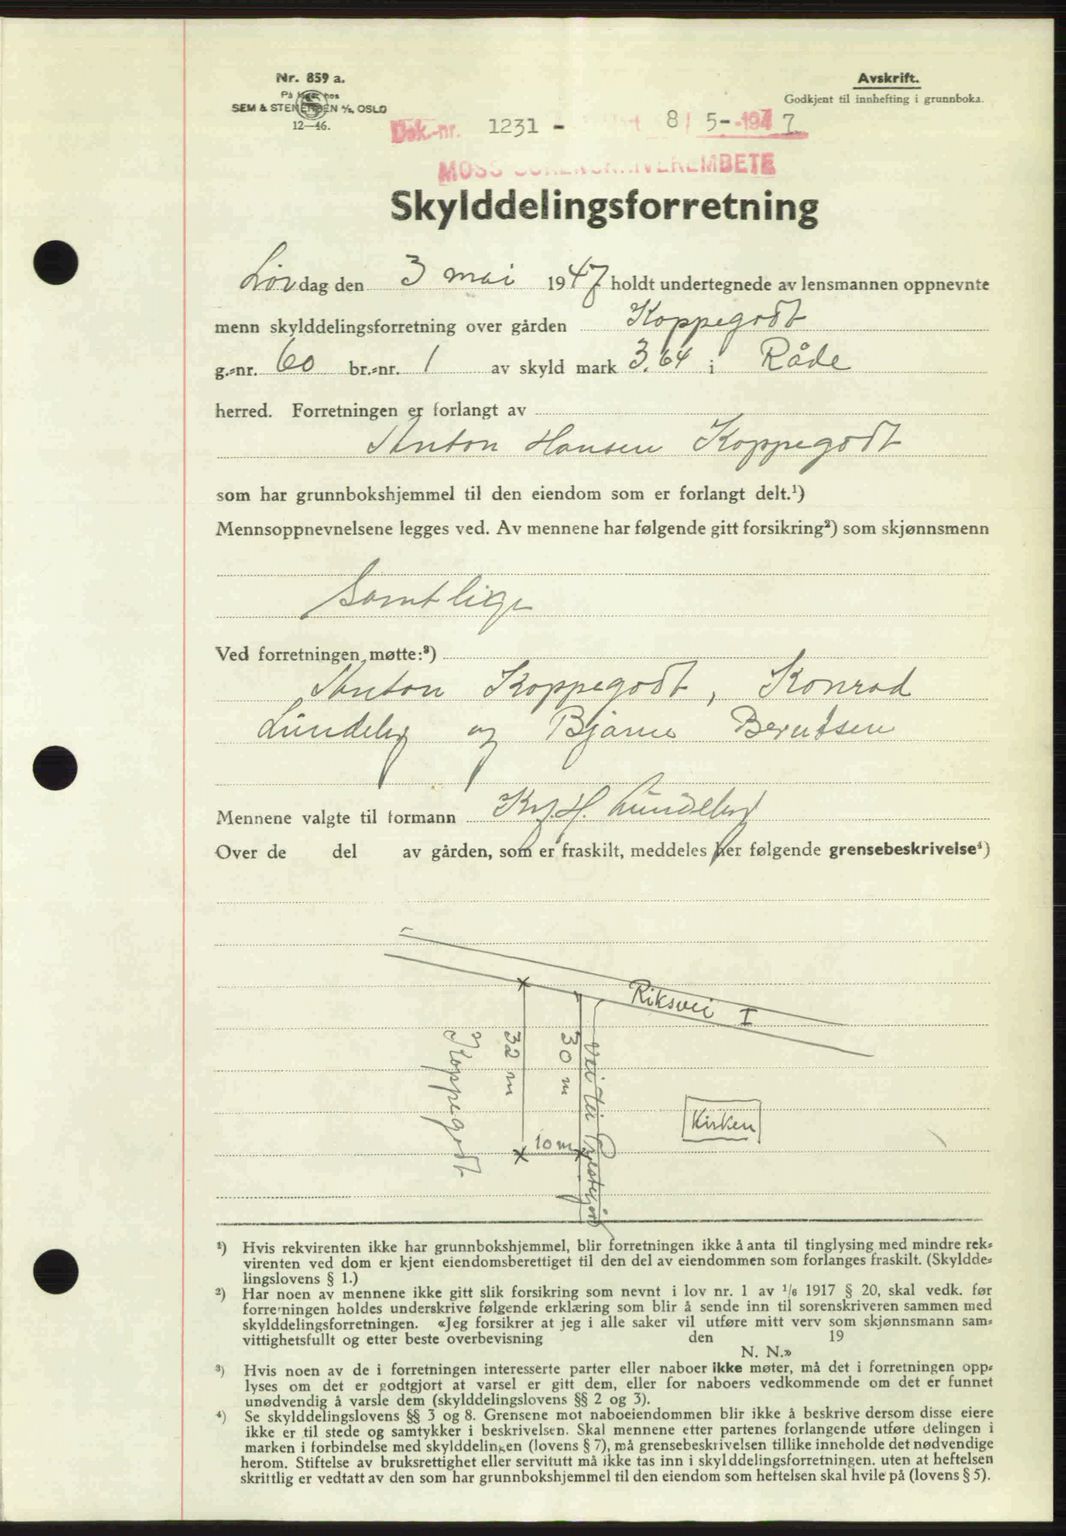 Nr. 859 a.
På lager hos
SEM & STENERSEN A/S, OSLO
12—46.
Avskrift.
Godkjent til innhefting i grunnboka.
Dok.-nr. 1231 - 8/5-1947
MOSS SORENSKRIVEREMBETE
Skylddelingsforretning
Lørdag den 3 mai 1947 holdt undertegnede av lensmannen oppnevnte
menn skylddelingsforretning over gården Koppegodt
g.-nr. 60 br.-nr. 1 av skyld mark 3.64 i Råde
herred. Forretningen er forlangt av
Anton Hansen Koppegodt
som har grunnbokshjemmel til den eiendom som er forlangt delt.¹)
Mennsoppnevnelsene legges ved. Av mennene har følgende gitt forsikring²) som skjønnsmenn
Samtlige
Ved forretningen møtte:³)
Anton Koppegodt, Konrad
Lundeby og Bjarne Berntsen
Mennene valgte til formann Kr. H. Lundeby
Over de del av gården, som er fraskilt, meddeles her følgende grensebeskrivelse⁴)
Riksvei I
Koppegodt
32 m
30 m
vei til Prestegård
Kirken
10 m
¹) Hvis rekvirenten ikke har grunnbokshjemmel, blir forretningen ikke å anta til tinglysing med mindre rek-
virenten ved dom er kjent eiendomsberettiget til den del av eiendommen som forlanges fraskilt. (Skyldde-
lingslovens § 1.)
²) Har noen av mennene ikke gitt slik forsikring som nevnt i lov nr. 1 av 1/6 1917 § 20, skal vedk. før
forretningen holdes underskrive følgende erklæring som blir å sende inn til sorenskriveren sammen med
skylddelingsforretningen. «Jeg forsikrer at jeg i alle saker vil utføre mitt verv som skjønnsmann sam-
vittighetsfullt og etter beste overbevisning den 19
N. N.»
³) Hvis noen av de i forretningen interesserte parter eller naboer ikke møter, må det i forretningen opp-
lyses om det er godtgjort at varsel er gitt dem, eller for naboers vedkommende om det er funnet
unødvendig å varsle dem (skylddelingslovens §§ 2 og 3).
⁴) Se skylddelingslovens §§ 3 og 8. Grensene mot naboeiendommen blir ikke å beskrive dersom disse eiere
ikke er til stede og samtykker i beskrivelsen. Skal mennene etter partenes forlangende utføre delingen i
marken i forbindelse med skylddelingen (lovens § 7), må grensebeskrivelsen tillike inneholde det nødvendige
herom. Stiftelse av bruksrettighet eller servitutt må ikke tas inn i skylddelingsforretningen. uten at heftelsen
skriftlig er vedtatt av den som har grunnbokshjemmel til den eiendom som heftelsen skal hvile på (lovens § 5).